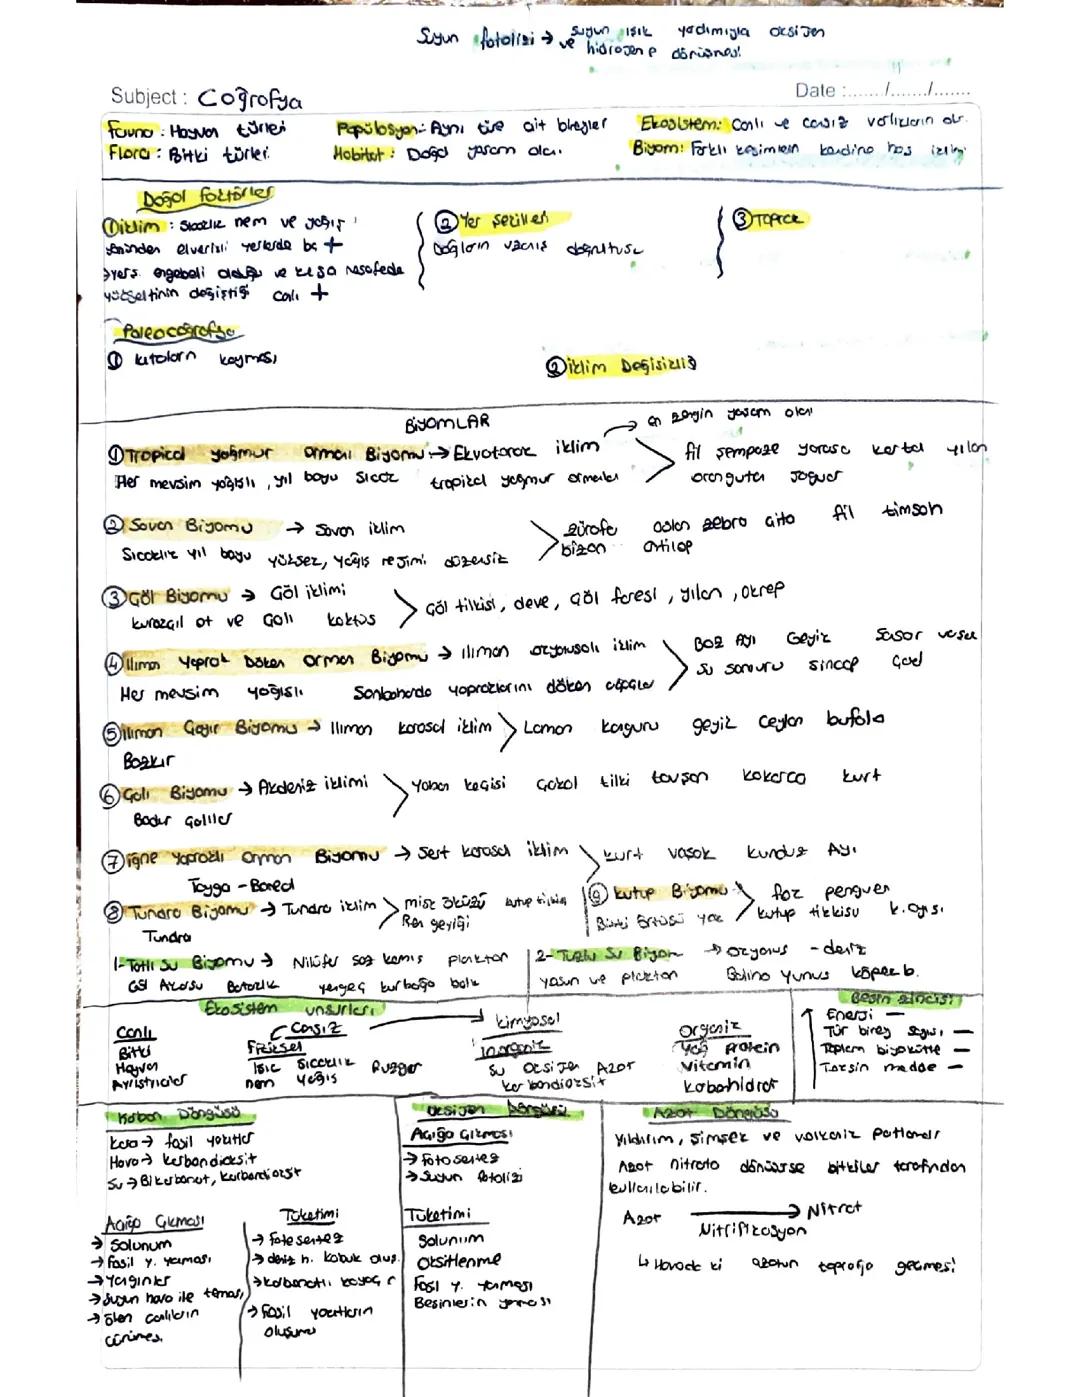 Suyun fotolizi → Suyun ışık yardımıyla oksijen
ve hidrojene dönüşmesi
Subject : Coğrafya
Date :......./......./.......
Fauna : Hayvan türleri
Flora : Bitki türleri
Popülasyon: Aynı türe ait bireyler
Habitat : Doğal yaşam alanı
Ekosistem: Canlı ve cansız varlıkların
Biyom: Farklı kesimlein kendine has
Doğal faktörler
① iklim : Sıcaklık nem ve yağış
yönünden elverişli yerlerde bç +
yerş. engebeli olduğu ve kısa mesafede
yükseltinin değiştiği canlı +
② Yer şekilleri
Dağların uzanış doğrultusu
③ Toprak
Paleocoğrafya
① kıtaların kayması
② iklim Değişikliği
BiyomLAR
① Tropical yağmur ormanı Biyomu → Ekvatoral iklim → en zengin yaşam alanı
Her mevsim yağışlı, yıl boyu sıcak tropikal yağmur ormanları
fil şempaze yarasa kartal yılan
orangutan Jaguar
② Savan Biyomu → Savan iklim
Sıcaklık yıl boyu yüksek, yağış rejimi düzensiz
zürafe aslan zebra çita fil timsah
bizon antilop
③ Çöl Biyomu → Çöl iklimi
kurakçıl ot ve çalı kaktüs
Çöl tilkisi, deve, Çöl faresi, yılan, akrep
④ Ilıman Yaprak Döken Orman Biyomu → ılıman okyanusal iklim
Her mevsim yağışlı Sonbaharda yapraklarını döken ağaçlar
Boz Ayı Geyik
Su samuru sincap
⑤ Ilıman Çayır Biyomu → Ilıman karasal iklim > Laman kanguru geyik ceylan bufalo
Bozkır
⑥ Çalı Biyomu → Akdeniz iklimi > Yaban keçisi Çakal tilki tavşan kokarca kurt
Bodur çalılar
⑦ iğne Yapraklı Orman Biyomu → Sert karasal iklim > kurt vaşak kunduz Ayı
Tayga - Boreal
⑧ Tundra Biyomu → Tundra iklim > misk öküzü kutup tilkisi
Ren geyiği
Tundra
⑨ kutup Biyomu > foz penguen
Bitki örtüsü yok kutup tikkisi k.ayısı
1- Tatlı Su Biyomu → Nilüfer saz kamış plankton
Göl Akarsu Bataklık yengeç kurbağa balık
2- Tuzlu Su Biyom → okyanus - deniz
yosun ve plankton Balina Yunus köpek b.
Ekosistem unsurları
Canlı
Bitki
Hayvan
Ayrıştırıcılar
Cansız
Fiziksel
Işık Sıcaklık Rüzgar
nem Yağış
kimyasal
inorganik
Su Oksijen Azot
karbondioksit
Organik
Yağ Protein
Vitamin
karbohidrat
Besin zinciri
Enerji —
Tür birey sayısı —
Toplam biyokütle —
Toksin madde —
Kabon Döngüsü
kara → fosil yakıtlar
Hava → karbondioksit
Su → Bikarbonat, karbondioksit
Açığa Çıkması
→ Solunum
→ fosil y. yanması
→ Yangınlar
→ Suyun hava ile teması
→ ölen canlıların
çürümes.
Tüketimi
→ Fotosentez
→ deniz h. kabuk oluş.
→ karbonatlı kayaç
→ Fosil yakıtların
oluşumu
Oksijen Döngüsü
Açığa Çıkması
→ Fotosentez
→ Suyun fotolizi
Tüketimi
Solunum
Oksitlenme
Fosil y. yanması
Besinlerin yanması
Azot Döngüsü
Yıldırım, Şimşek ve volkanik patlamalr
Azot nitrata dönüşürse bitkiler tarafından
kullanılabilir.
Azot → Nitrat
Nitrifikasyon
↳ Havada ki azotun toprağa geçmesi